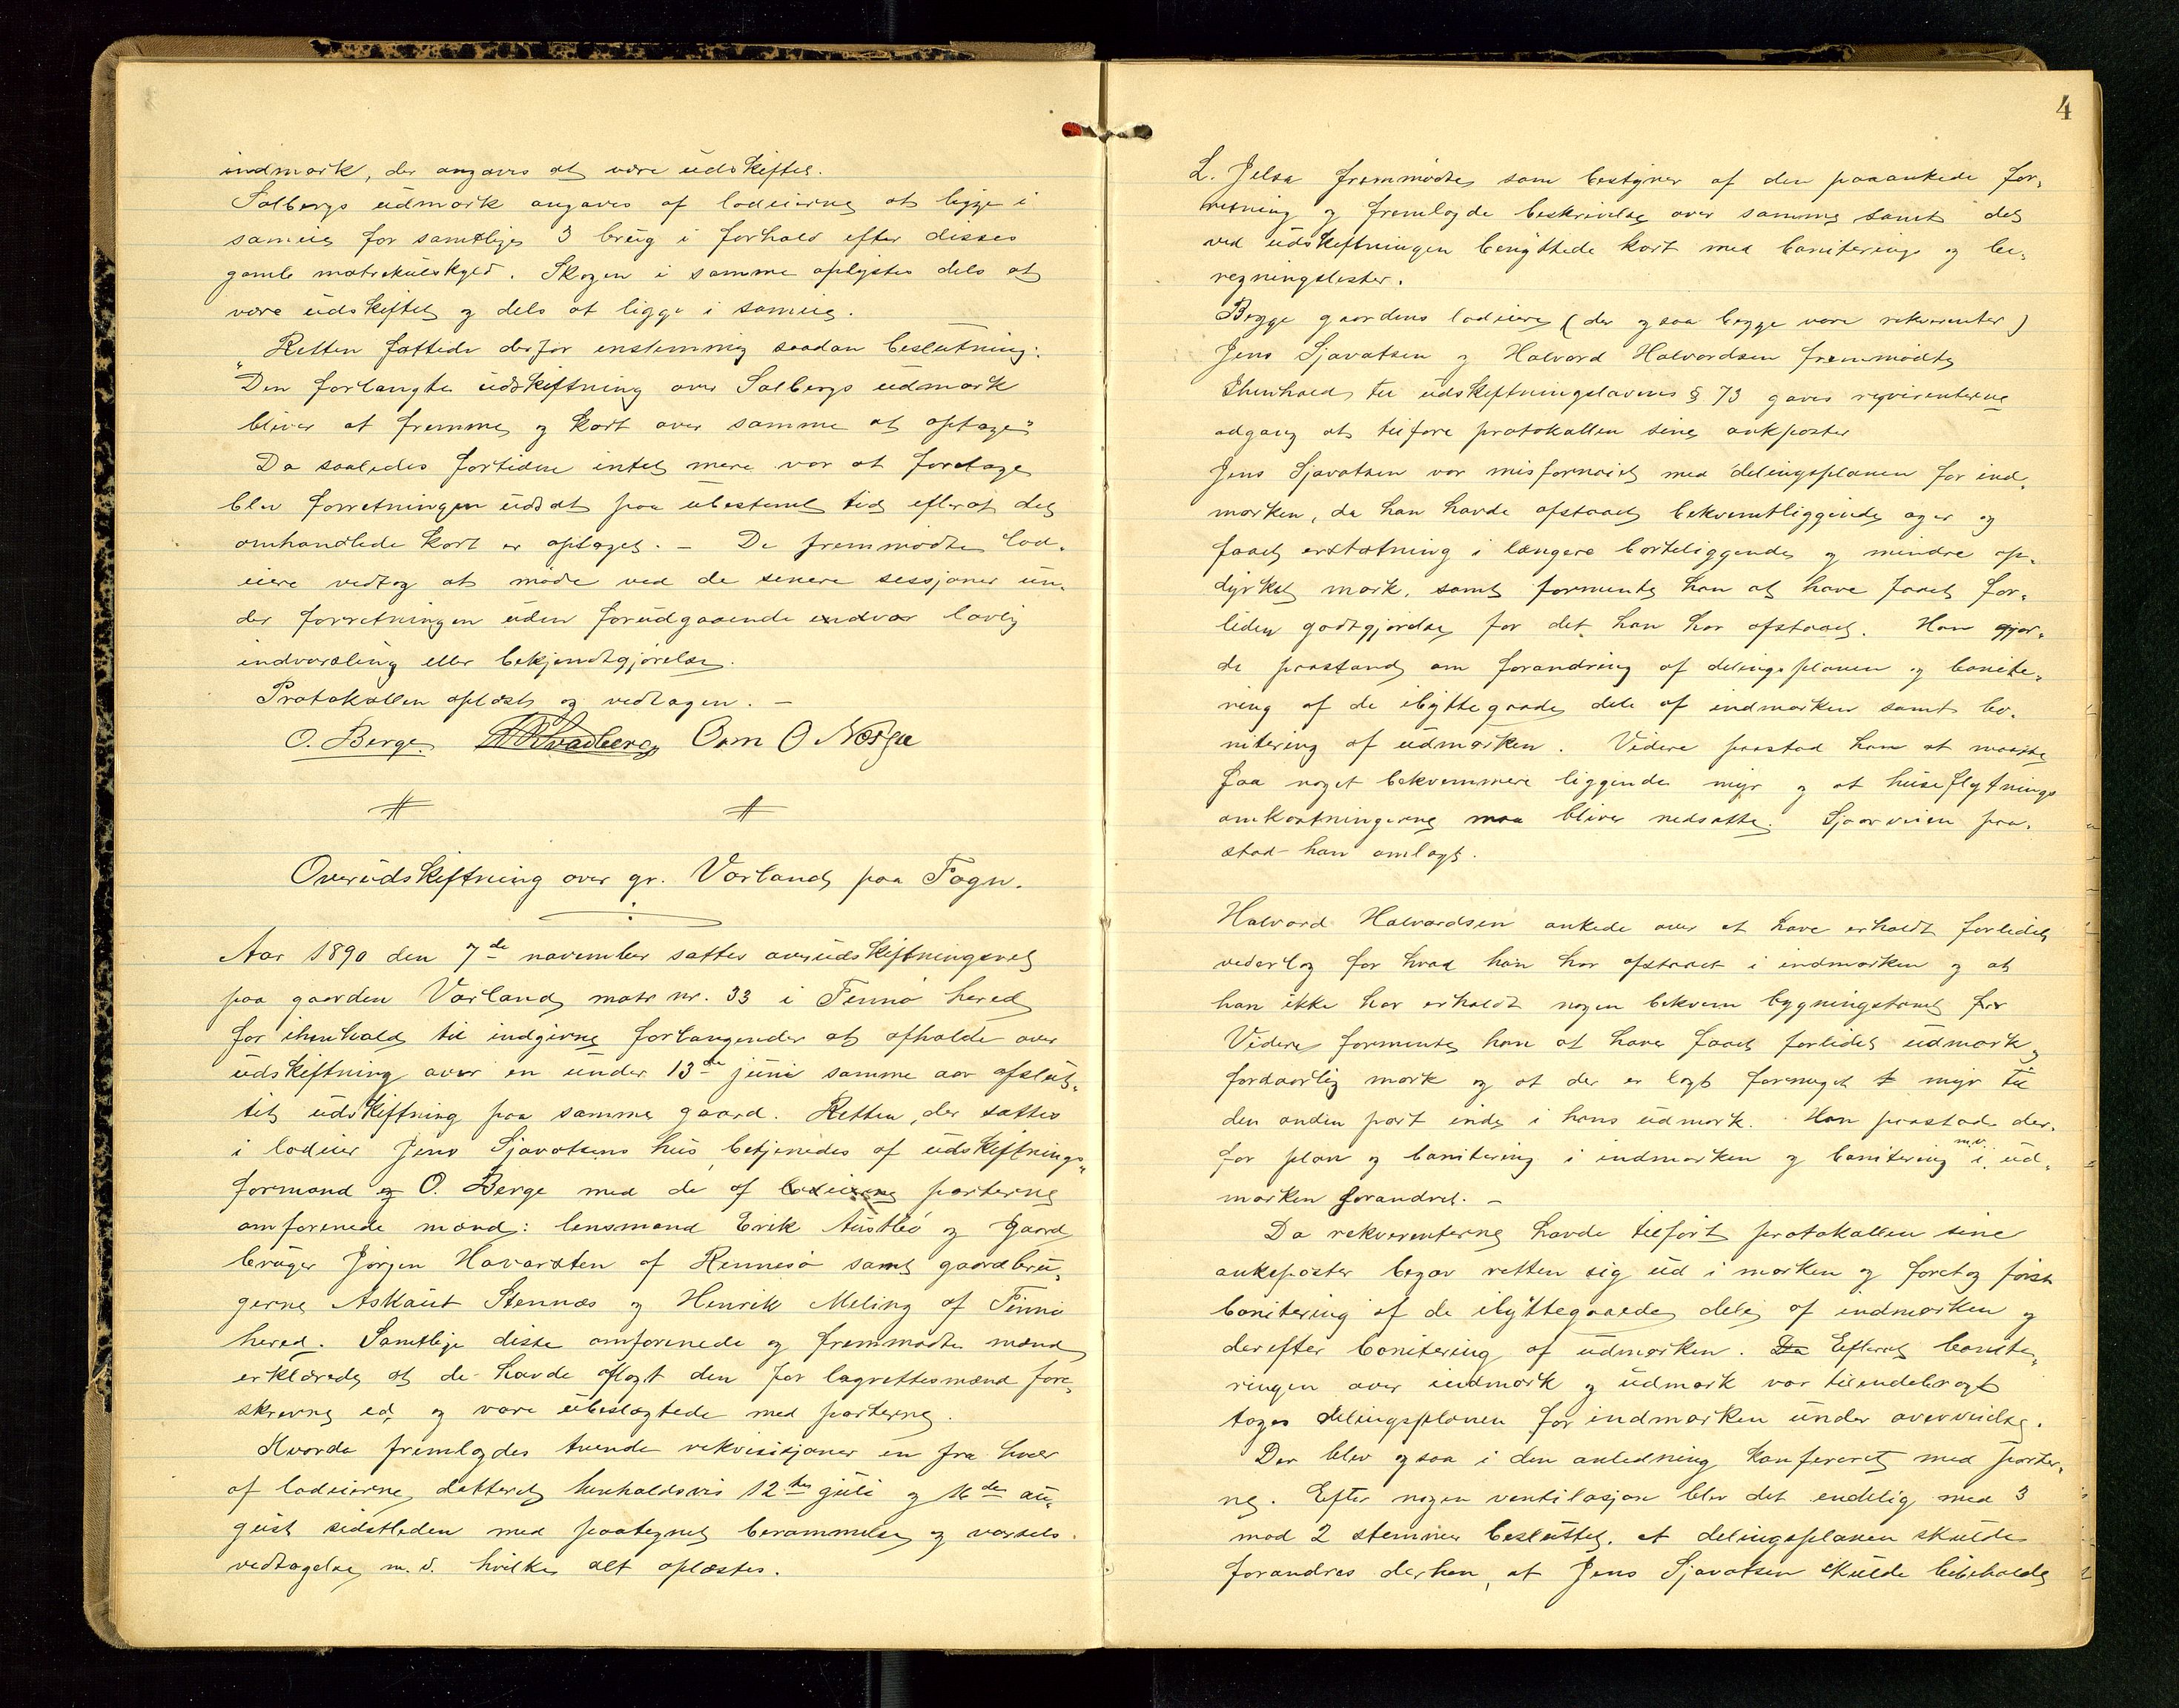 indmark, der angaves at være udskiftet.
Solbergs udmark angaves af lodeierne at ligge i
sameie for samtlige 3 brug i forhold efter disses
gamle matrikulskyld. Skogen i samme oplystes dels at
være udskiftet og dels at ligge i sameie.
Retten fattede derfor enstemmig saadan beslutning:
"Den forlangte udskiftning over Solbergs udmark
bliver at fremme og kart over samme at optage"
Da saaledes fortiden intet mere var at foretage
blev forretningen udsat paa ubestemt tid efterat det
omhandlede kart er optaget. – De fremmødte lod-
eiere vedtog at møde ved de senere sessjoner un-
der forretningen uden forudgaaende lovlig
indvarsling eller bekjendtgjørelse.
Protokollen oplæst og vedtagen. –
O. Berge. Orm O Nærgie
Overudskiftning over gr. Vorland paa Fogn.
Aar 1890 den 7de november sattes overudskiftningsret
paa gaarden Vorland matr nr. 33 i Finnø hered
for ihenhold til indgivne forlangender at afholde over
udskiftning over en under 13de juni samme aar afslut-
tet udskiftning paa samme gaard. Retten, der sattes
i lodeier Jens Sjovatsens hus, betjenedes af udskiftnings-
formand og O. Berge med de af lodeierne parterne
omforenede mænd: lensmand Erik Austbø og gaard
bruger Jørgen Havarsten af Rennesø samt gaardbru-
gerne Askaut Stennæs og Henrik Meling af Finnø
hered. Samtlige disse omforenede og fremmødte mænd
erklærede at de havde aflagt den for lagrettesmænd fore-
skrevne ed, og være ubeslægtede med parterne.
Hvorda fremlagdes tvende rekvisisjoner en fra hver
af lodeierne, datteret henholdsvis 12te juli og 16de au-
gust sidstleden med paategnet berammelse og varsels
vedtagelse m. v. hvilke alt oplæstes.
4
L. Jelsa fremmødte som bestyrer af den paaankede for-
retning og fremlagde beskrivelse over samme samt det
ved udskiftningen benyttede kart med bonitering og be-
regningslister.
Begge gaardens lodeiere (der ogsaa begge vare rekvirenter)
Jens Sjovatsen og Halvard Halvardsen fremmødte
Ihenhold til udskiftningslovens § 73 gaves reqvirenterne
adgang at tilføre protokollen sine ankposter
Jens Sjovatsen var misfornøiet med delingsplanen for ind-
marken, da han havde afstaaet bekvemtliggende ager og
faaet erstatning i længere borteliggende og mindre op-
dyrket mark, samt formente han at have faaet for-
liden godtgjørelse for det han har afstaaet. Han gjor-
de paastand om forandring af delingsplanen og bonite-
ring af de ibyttegaaede dele af indmarken samt bo-
nitering af udmarken. Videre paastod han at maatte
faa noget bekvemmere liggende myr og at huseflytnings
omkostningerne maa bliver nedsatte. Sjøarveien paa-
stod han omlagt.
Halvard Halvardsen ankede over at have erholdt forlidet
vederlag for hvad han har afstaaet i indmarken og at
han ikke har erholdt nogen bekvem bygningstomt før
Videre formente han at have faaet forlidet udmark,
fordaarlig mark og at der er lagt formeget t myr til
den anden part inde i hans udmark. Han paastode der-
for plan og bonitering i indmarken og bonitering m.v. i ud-
marken forandret. –
Da rekvirenterne havde tilført protokollen sine
ankeposter begav retten sig ud i marken og foretog først
bonitering af de ibyttegaaede dele af indmarken og
derefter bonitering af udmarken. Da Efterat bonite-
ringen over indmark og udmark var tilendebragt
toges delingsplanen for indmarken under overveielse.
Der blev ogsaa i den anledning konfereret med parter-
ne. Efter nogen ventilasjon blev det endelig med 3
mod 2 stemmer besluttet, at delingsplanen skulde
forandres derhen, at Jens Sjovatsen skulde bibeholde